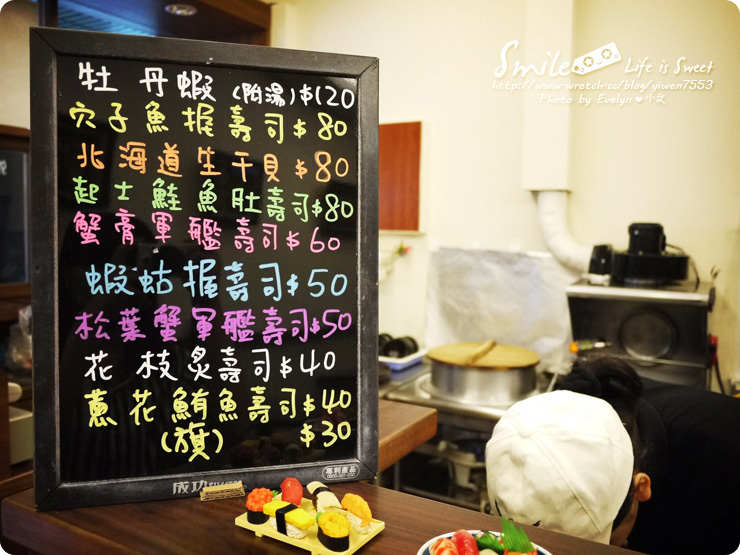 牡丹蝦(附湯)$120
穴子魚握壽司$80
北海道生干貝$80
起士鮭魚肚壽司$80
蟹膏軍艦壽司$60
蝦蛄握壽司$50
松葉蟹軍艦壽司$50
花枝炙壽司$40
蔥花鮪魚壽司$40
(旗) $30
成功 SUCCESS
專利產品
Smile Life is Sweet
http://www.wretch.cc/blog/yiwen7553
Photo by Evelyn ♥ 小文